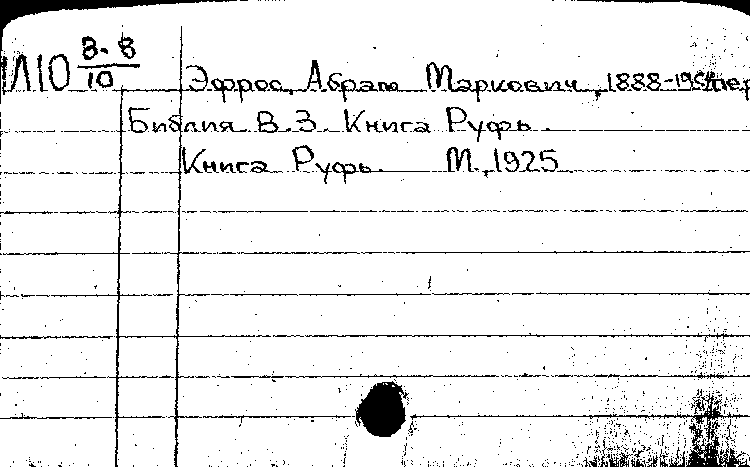 1Л10 8.8/10 Эфрос, Абрам Маркович, 1888-1954 пер
Библия В.З. Книга Руфь.
Книга Руфь. М., 1925